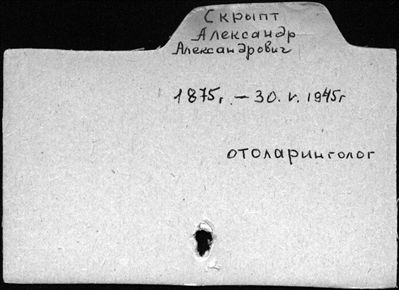 Скрыпт
Александр
Александрович
1875г. – 30. V. 1945г
отоларинголог